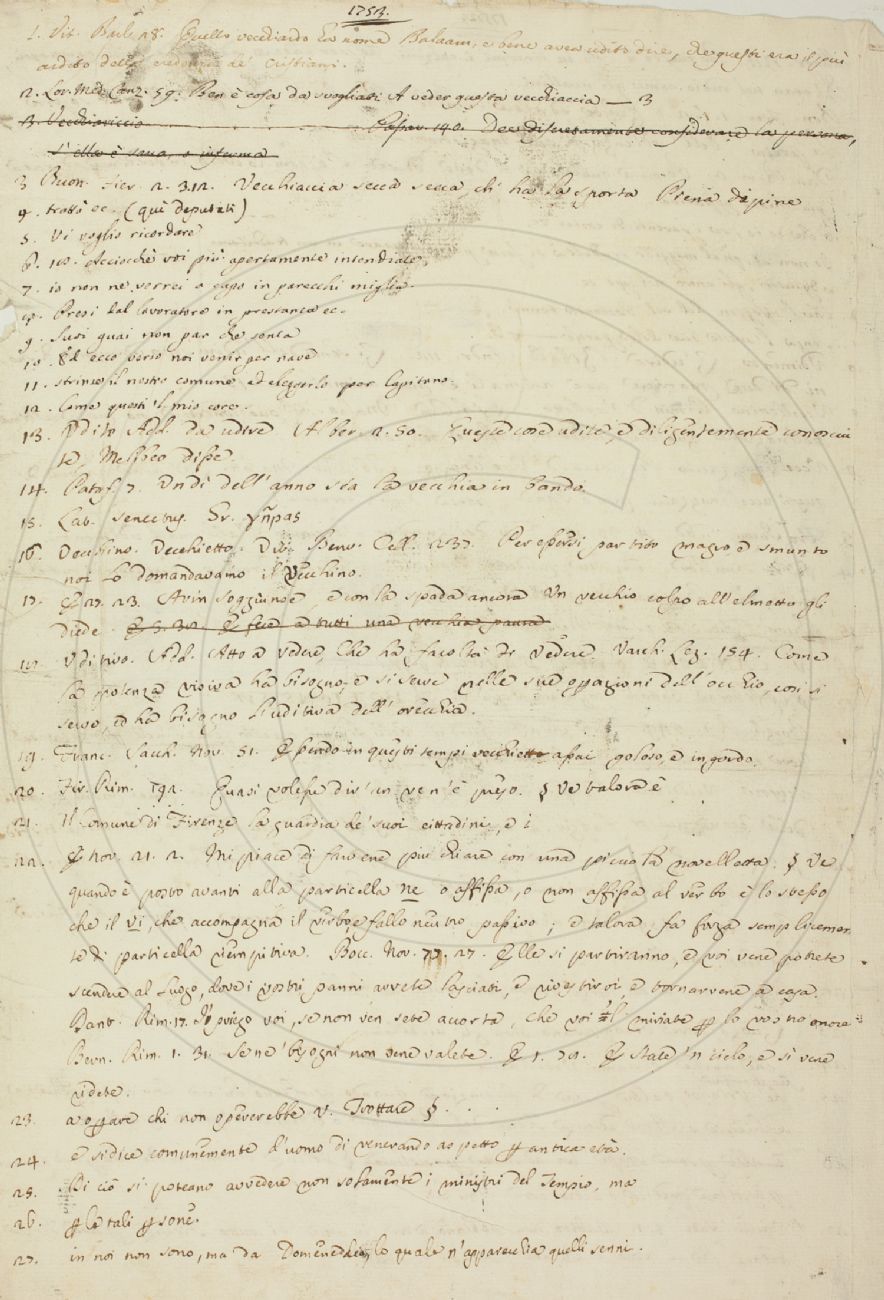 1753.
1. Vit. Barl. 28. Quello vecchiardo ha nome Balaam, e bene avea udito dire, che questi era il più
ardito della credenza de' Cristiani.
2. Lor. Med. Canz. 59. Ben è cosa da svogliati A veder questa vecchiaccia — 3
3. Vecchiericcio Passav. 140. Dee discretamente considerare la persona,
s'ella è sana, o inferma
3 Buon. Fier. 2. 3.12. Vecchiaccia secca secca, ch' ha la sporta Piena di pine
4. trotti ec. (qui deputati)
5. Vi voglio ricordare
6. 10. Acciocchè voi più apertamente intendiate,
7. io non ne verrei a capo in parecchi miglia.
8. Presi dal lavoratore in prestanza ec.
9. Suoi guai non par che senta
10. Ed ecco verso noi venir per nave
11. strinse il nostro comune ad eleggerlo per Capitano.
12. Come questi 'l mio core.
13. Udito Add. da udire Alber. 2. 50. Queste cose udite, e diligentemente conosciu
te, Melibeo disse.
14. Pataff. 7. Un dì dell' anno sta la vecchia in bando.
15. Lat. senectus. Gr. γῆρας
16. Vecchino. Vecchietto. Dim. Benv. Cell. 237. Per essersi partito magro e smunto
noi lo domandavamo il Vecchino.
17. E 27. 23. Avin soggiunse, e con la spada ancora Un vecchio colpo all'elmetto gli
diede. E 3. 32. E fece a tutti una vecchia paura
18. Uditivo. Add. Atto a vedere, Che ha facoltà di vedere. Varch. Lez. 154. Come
la potenza visiva ha bisogno, e si serve nelle sue operazioni dell' occhio, così si
serve, ed ha bisogno l'uditiva dell' orecchia.
19. Franc. Sacch. Nov. 51. Essendo in questi tempi vecchietto assai goloso, e ingordo.
20. Fir. Rim. 192. Quasi volesse dir' un ven'è preso. § Ve talora è
21. Il Comune di Firenze la guardia de' suoi cittadini, e i
22. E Nov. 21. 2. Mi piace di farvene più chiare con una piccola novelletta. § Ve
quando è posto avanti alla particella ne o affissa, o non affissa al verbo è lo stesso
che il vi, che accompagna il verbo, e fallo neutro passivo; e talora fa forza semplicemen
te di particella riempitiva. Bocc. Nov. 77. 27. Elle si partiranno, e voi vene potrete
scendere al luogo, dove i vostri panni avrete lasciati, e rivestirvi e tornarvene a casa.
Dant. Rim. 17. Io priego voi, se non ven sete accorta, che voi 'l miriate per lo vostro onore
Bern. Rim. 1. 31. Se ne' bisogni non vene valete. E 1. 79. E state 'n cielo, e sì vene
ridete.
23. a oprare chi non opererebbe V. Trottare §. . .
24. e si dice comunemente d'uomo di venerando aspetto per antica età.
25. Di ciò si poteano avvedere non solamente i ministri del Tempio, ma
26. per le tali persone.
27. in noi non sono, ma da Domeneddio, lo quale n'apparecchia quelli senni.